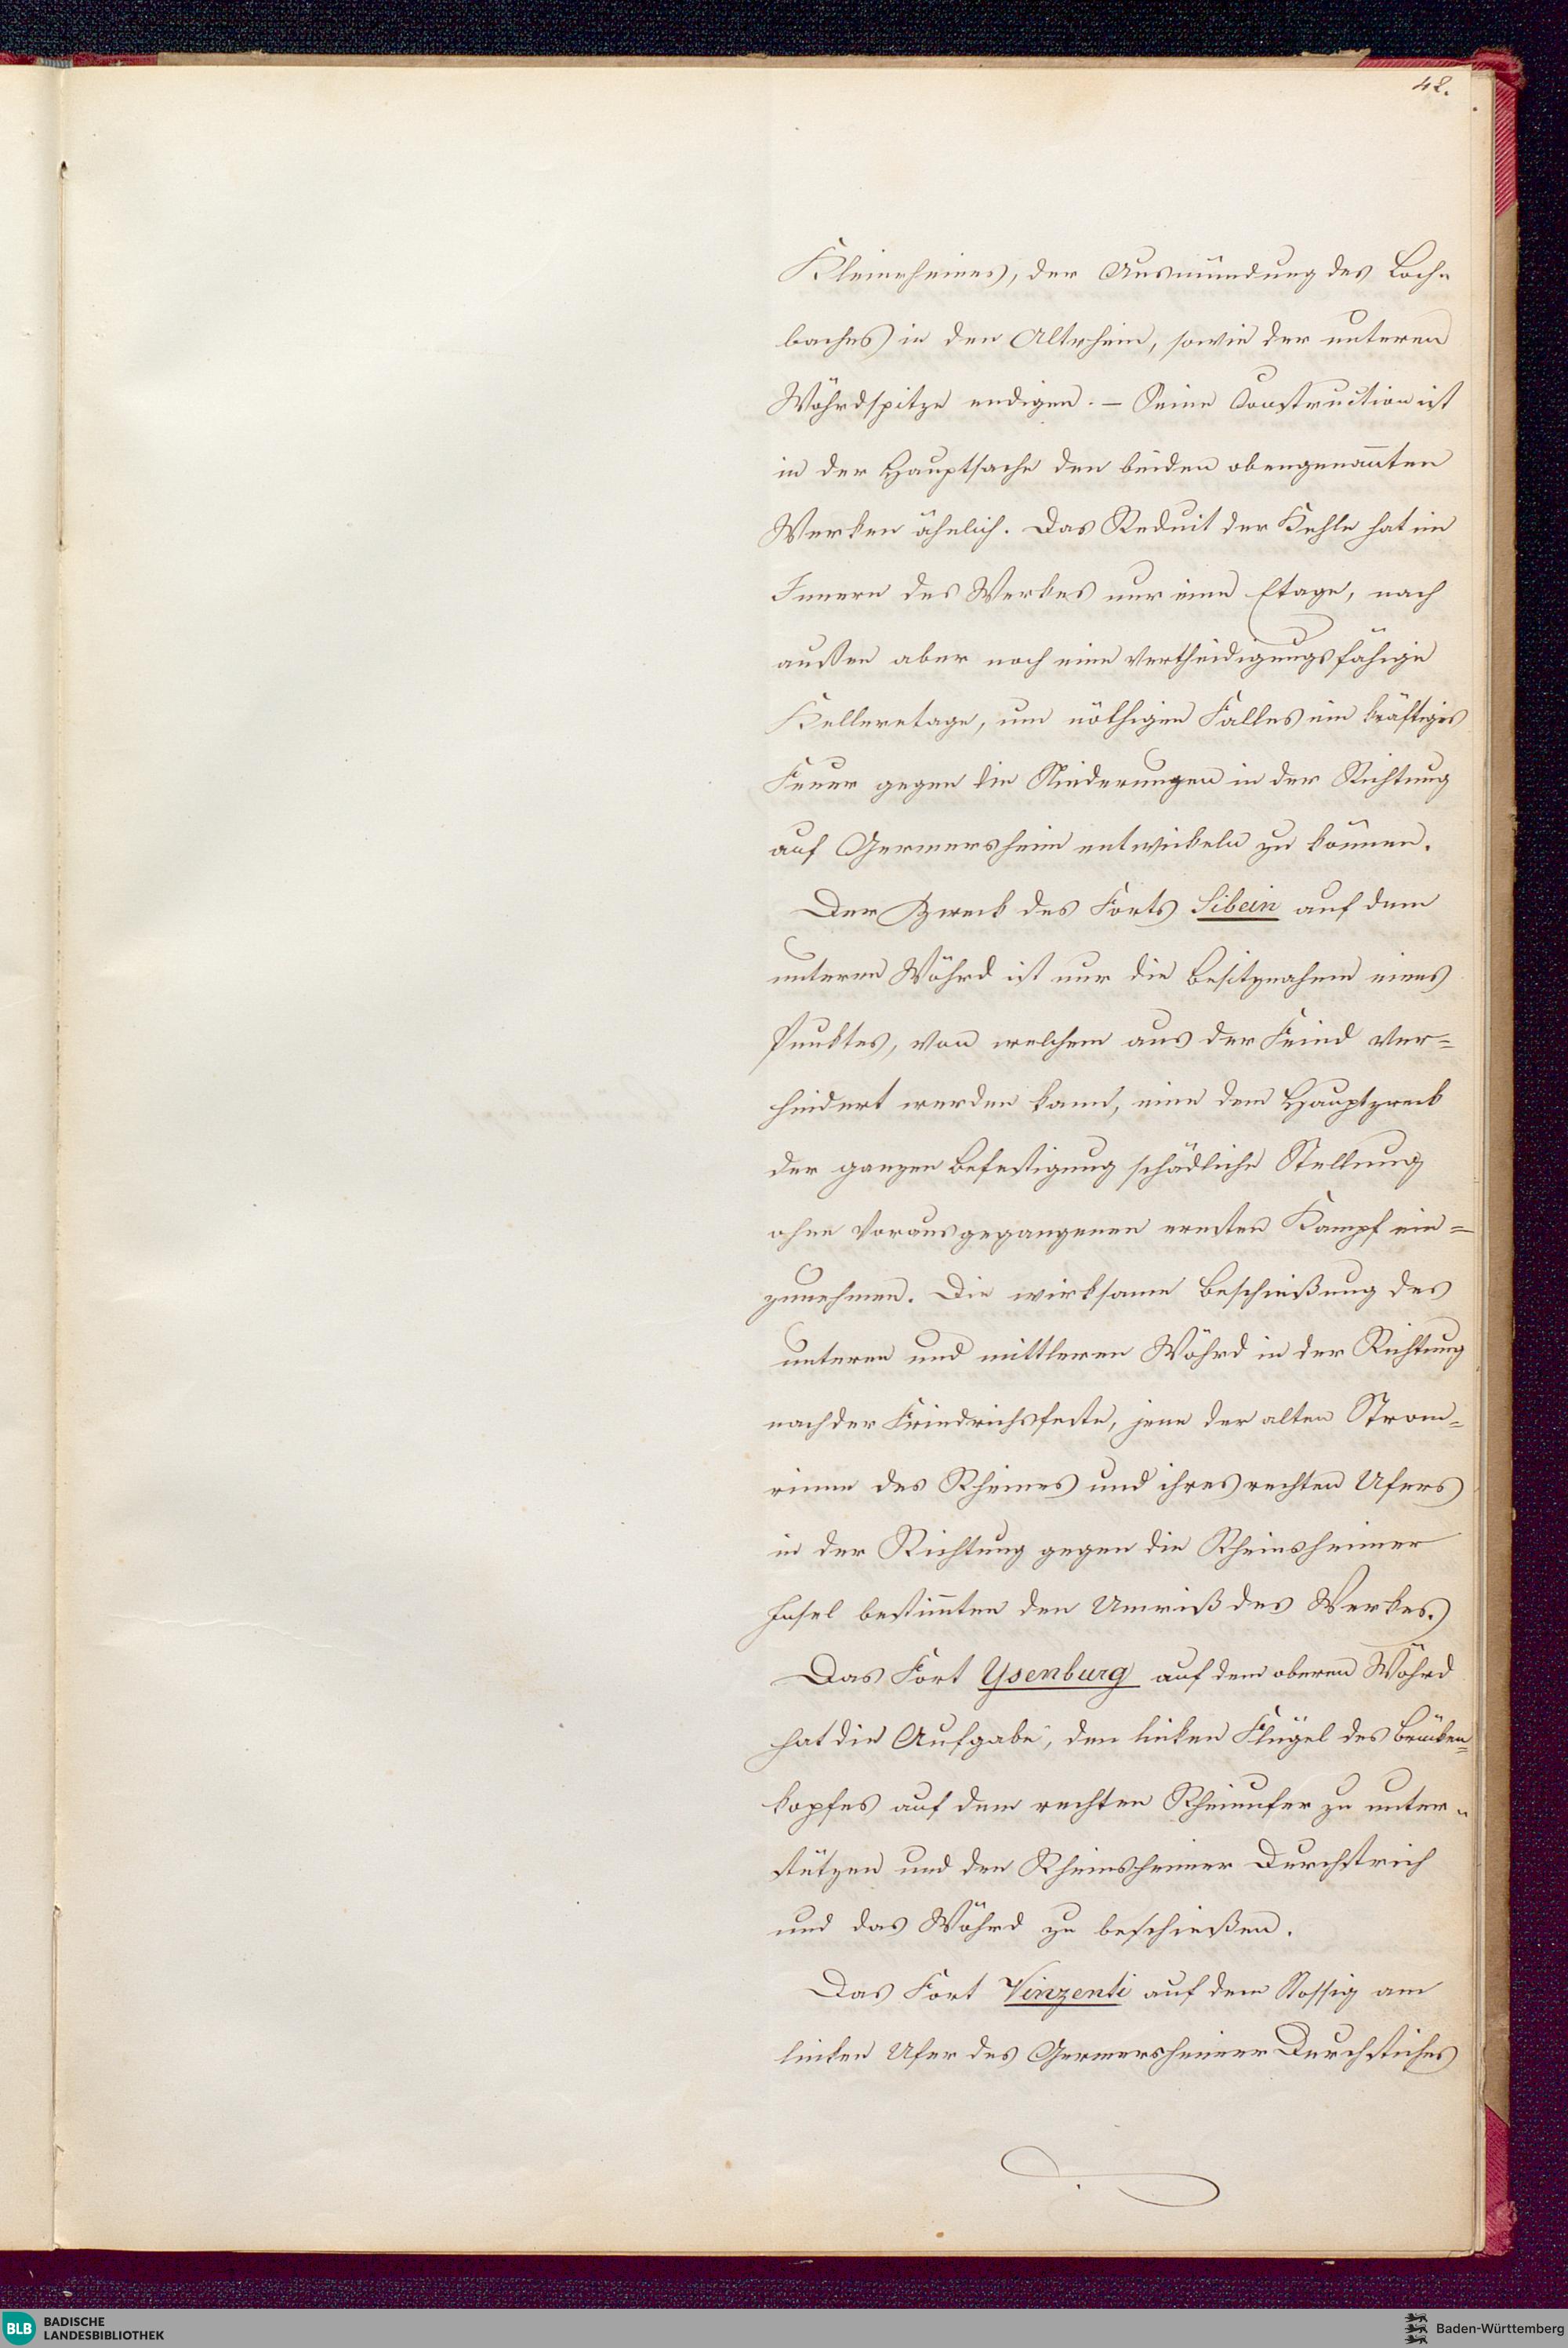 42.
Kleinrheines, der Ausmündung des Loch-
baches in den Altrhein, sowie der unteren
Wöhrdspitze endigen. – Seine Construction ist
in der Hauptsache den beiden obengenannten
Werken ähnlich. Das Reduit der Kehle hat im
Innern des Werkes nur eine Etage, nach
außen aber noch eine vertheidigungsfähige
Kelleretage, um nöthigen Falles ein kräftiges
Feuer gegen die Niederungen in der Richtung
auf Germersheim entwickeln zu können.
Der Zweck des Forts Sibein auf dem
unteren Wöhrd ist nur die Besitznahme eines
Punktes, von welchem aus der Feind ver=
hindert werden kann, eine dem Hauptzweck
der ganzen Befestigung schädliche Stellung
ohne vorausgegangenen ernsten Kampf ein=
zunehmen. Die wirksame Beschießung des
unteren und mittleren Wöhrd in der Richtung
nach der Friedrichsfeste, jene der alten Strom=
rinne des Rheines und ihres rechten Ufers
in der Richtung gegen die Rheinsheimer
Insel bestimmten den Umriß des Werkes.
Das Fort Ysenburg auf dem oberen Wöhrd
hat die Aufgabe, den linken Flügel des Brücken=
kopfes auf dem rechten Rheinufer zu unter-
stützen und den Rheinsheimer Durchstrich
und das Wöhrd zu beschießen.
Das Fort Vinzenti auf dem Rossig am
linken Ufer des Germersheimer Durchstiches
BLB BADISCHE
LANDESBIBLIOTHEK
Baden-Württemberg